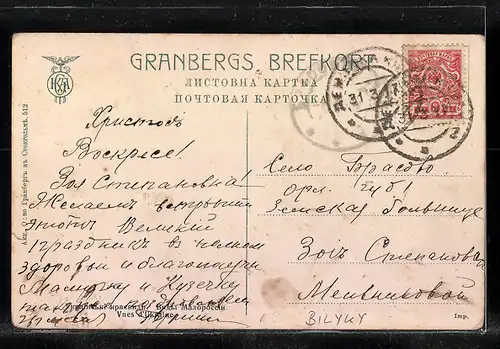 GRANBERGS BREFKORT
ЛИСТОВНА КАРТКА
ПОЧТОВАЯ КАРТОЧКА
Акц. О-во Гранбергъ въ Стокгольмѣ. 512
31 3
Христосъ
Воскресе!
Зоя Степановна!
Желаемъ встрѣтить
этотъ Великій
праздникъ въ полномъ
здоровьи и благополучіи
Мамочку и Кузечку
также
Село Брасово
Орл. губ.
Земская больница
Зоѣ Степановнѣ
Мельниковой
Виды Малороссіи.
Vues d'Ukraine.
Imp.
BILYKY